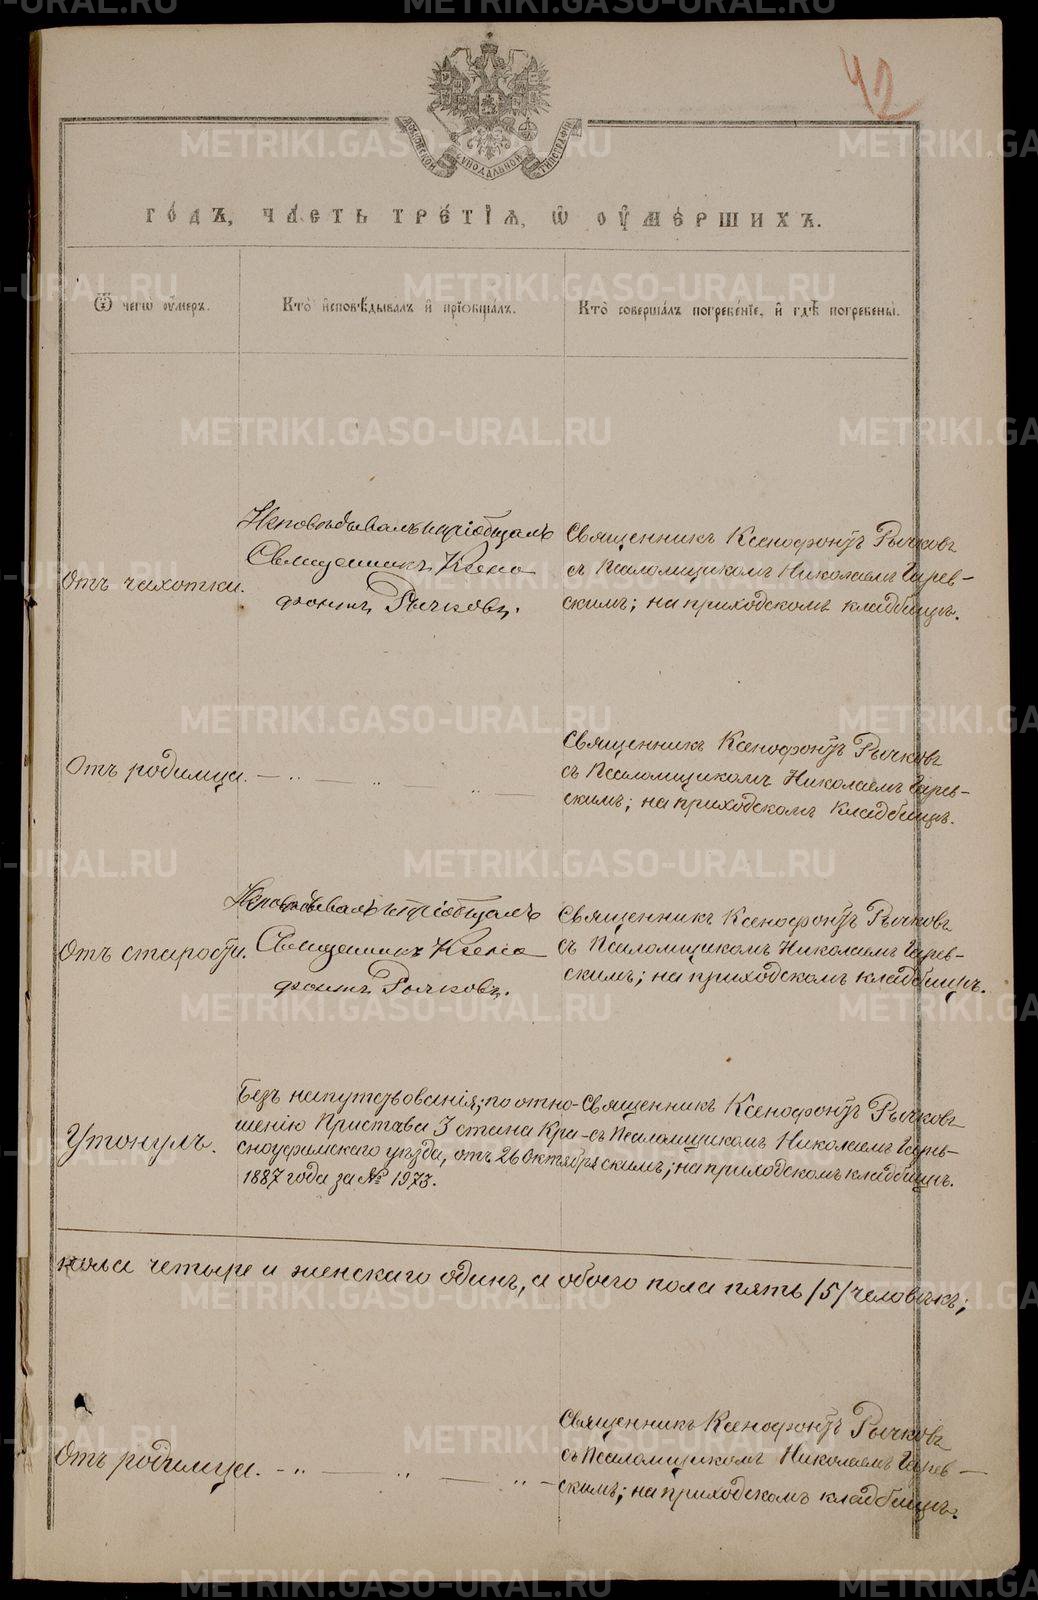 42
МОСКОВСКОЙ СѴНОДАЛЬНОЙ ТИПОГРАФІИ
го́дъ, ча́сть тре́тїѧ, ѡ҆ ᲂу҆ме́ршихъ.
Ѿ чегѡ̀ ᲂу҆́меръ.
Кто̀ и҆сповѣ́дывалъ и҆ прїѡбща́лъ.
Кто̀ соверша́лъ погребе́нїе, и҆ гдѣ̀ погребены̀.
Отъ чахотки.
Исповѣдывалъ и пріобщалъ
Священникъ Ксено
фонтъ Рычковъ.
Священникъ Ксенофонтъ Рычковъ
съ Псаломщикомъ Николаемъ Царев-
скимъ; на приходскомъ кладбищѣ.
Отъ родимца. — „ — „ — „ —
Священникъ Ксенофонтъ Рычковъ
съ Псаломщикомъ Николаемъ Царев-
скимъ; на приходскомъ кладбищѣ.
Отъ старости.
Исповѣдывалъ и пріобщалъ
Священникъ Ксено
фонтъ Рычковъ.
Священникъ Ксенофонтъ Рычковъ
съ Псаломщикомъ Николаемъ Царев-
скимъ; на приходскомъ кладбищѣ.
Утонулъ.
Безъ напутствованія; по отно-
шенію Пристава 3 стана Кра-
сноуфимскаго уѣзда, отъ 26 Октября
1887 года за № 1973.
Священникъ Ксенофонтъ Рычковъ
съ Псаломщикомъ Николаемъ Царев-
скимъ; на приходскомъ кладбищѣ.
пола четыре и женскаго одинъ, а обоего пола пять /5/ человѣкъ;
Отъ родимца. — „ — „ — „ —
Священникъ Ксенофонтъ Рычковъ
съ Псаломщикомъ Николаемъ Царев-
скимъ; на приходскомъ кладбищѣ.
METRIKI.GASO-URAL.RU